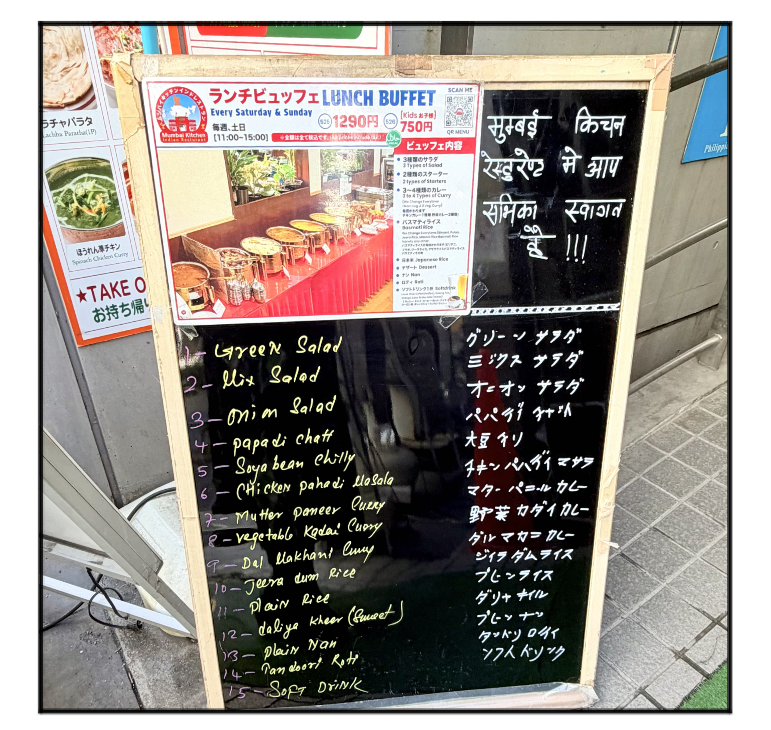 ラチャパラタ
Lachha Paratha(1P)
ほうれん草チキン
Spinach Chicken Curry
★TAKE O
お持ち帰り
Mumbai Kitchen
Indian Restaurant
ランチビュッフェ LUNCH BUFFET
Every Saturday & Sunday
毎週、土日
[11:00~15:00]
1290円
[Kids お子様]
750円
SCAN ME
QR MENU
ビュッフェ内容
3種類のサラダ
3 Types of Salad
2種類のスターター
2 types of Starters
3~4種類のカレー
3 to 4 Types of Curry
バスマティライス
Basmati Rice
日本米 Japanese Rice
デザート Dessert
ナン Nan
ロティ Roti
ソフトドリンク1杯 Softdrink
मुम्बई किचन
रेस्टुरेण्ट मे आप
सभिका स्वागत
है !!!
Philippi
1- Green Salad
2- Mix Salad
3- Onion Salad
4- papadi chatt
5- Soyabean Chilly
6- CHicken pahadi Masala
7- Mutter paneer Curry
8- vegetable Kadai Curry
9- Dal Makhani Curry
10- Jeera dum Rice
11- Plain Rice
12- daliya kheer (Sweet)
13- Plain Nan
14- Tandoori Roti
15- SoFt DrinK
グリーン サラダ
ミックス サラダ
オニオン サラダ
パパディ チャット
大豆 チリ
チキン パハディ マサラ
マター パニール カレー
野菜 カダイ カレー
ダル マカニ カレー
ジイラ ダムライス
プレンライス
ダリヤ キィル
プレン ナン
タンドリ ロティ
ソフトドリンク